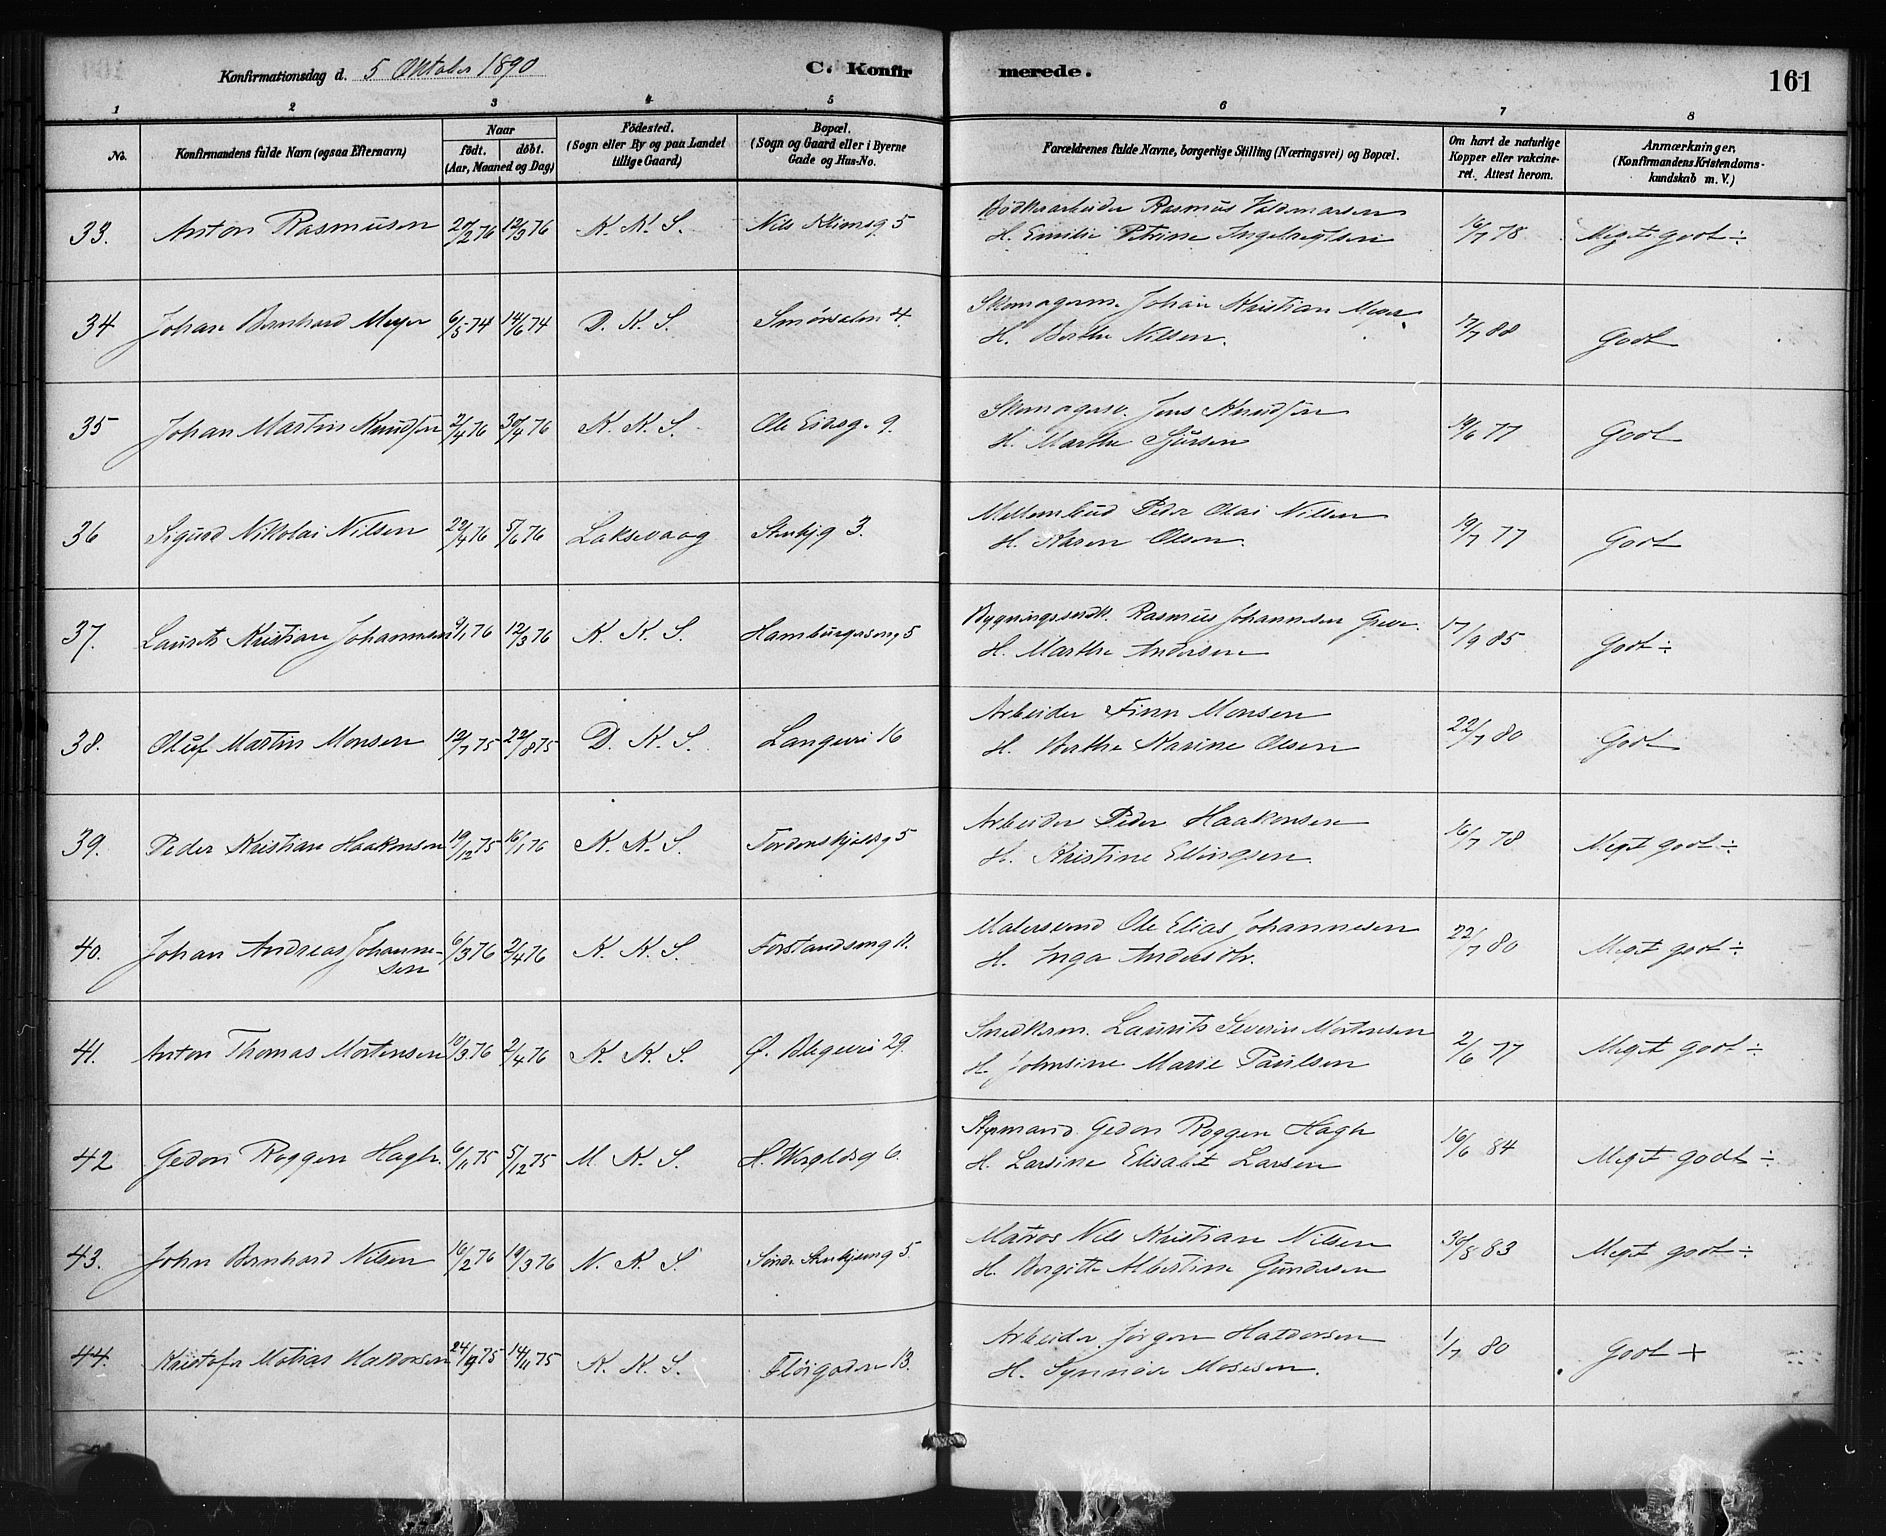 Konfirmationsdag d. 5 Oktober 1890 C. Konfirmerede. 161
1 2 3 4 5 6 7 8
No. Konfirmandens fulde Navn (ogsaa Efternavn) Naar født. døbt. (Aar, Maaned og Dag) Fødested. (Sogn eller By og paa Landet tillige Gaard) Bopæl. (Sogn og Gaard eller i Byerne Gade og Hus-No. Forældrenes fulde Navne, borgerlige Stilling (Næringsvei) og Bopæl. Om havt de naturlige Kopper eller vakcineret. Attest herom. Anmærkninger, (Konfirmandens Kristendomskundskab m. V.)
33. Anton Rasmusen 12/3 76 K. K. S. Nils Klimsg 5 Bødkerarbeider Rasmus Valdmarsen 16/7 78 Meget godt ÷
H. Emilie Petrine Ingebrigtsen
34 Johan Bernhard Meyer 6/5 74 14/6 74 D. K. S. Smørsalm 4. Skomagerm. Johan Kristian Meyer 17/7 88 Godt
H. Berthe Nilsen.
35 Johan Martin Knudsen 2/4 76 30/4 76 K. K. S. Ole Eidsg. 9. Skomagersv. Jens Knudsen 19/6 77 Godt
H. Marthe Sjursen
36 Sigurd Nikolai Nilsen 22/4 76 5/6 76 Laksevaag Stenkjg 3. Mellembud Peder Olai Nilsen 19/7 77 Godt
H. Karen Olsen.
37. Laurits Kristian Johannesen 9/1 76 12/3 76 K. K. S. Hamburgersmg 5 Bygningssndk. Rasmus Johannesen Greve. 17/9 85 Godt ÷
H. Marthe Andersen
38. Oluf Martin Monsen 12/7 75 22/8 75 D. K. S. Langevei 16 Arbeider Finn Monsen 22/7 80 Godt
H. Berthe Karine Olsen
39. Peder Kristian Haakonsen 19/12 75 16/1 76 K. K. S. Tordenskjoldsg 5 Arbeider Peder Haakonsen 16/7 78 Meget godt ÷
H. Kristine Ellingsen.
40. Johan Andreas Johannesen 6/3 76 2/4 76 K. K. S. Forstandersmg 11. Malersvend Ole Elias Johannesen 22/7 80 Meget godt ÷
H. Inga Andersdtr.
41. Anton Thomas Mortensen 10/3 76 2/4 76 K. K. S. Ø. Blegevei 29. Snedkerm. Laurits Severin Mortensen 2/6 77 Meget godt ÷
H. Johnsine Marie Paulsen
42 Gedon Roggen Hagh. 6/11 75 5/12 75 M. K. S. H. Wergeldsg 6. Styrmand Gedon Roggen Hagh 16/6 84 Meget godt ÷
H. Larsine Elisabet Larsen
43. John Bernhard Nilsen 16/2 76 19/3 76 N. K. S. Søndre Stenkjsmg 5 Matros Nils Kristian Nilsen 30/8 83 Meget godt ÷
H. Bergitte Albertine Gundersen
44. Kristofer Matias Haldorsen 24/9 75 14/11 75 K. K. S. Fløigaden 13. Arbeider Jørgen Haldorsen 1/7 80 Godt +
H. Synnøve Mosesen.